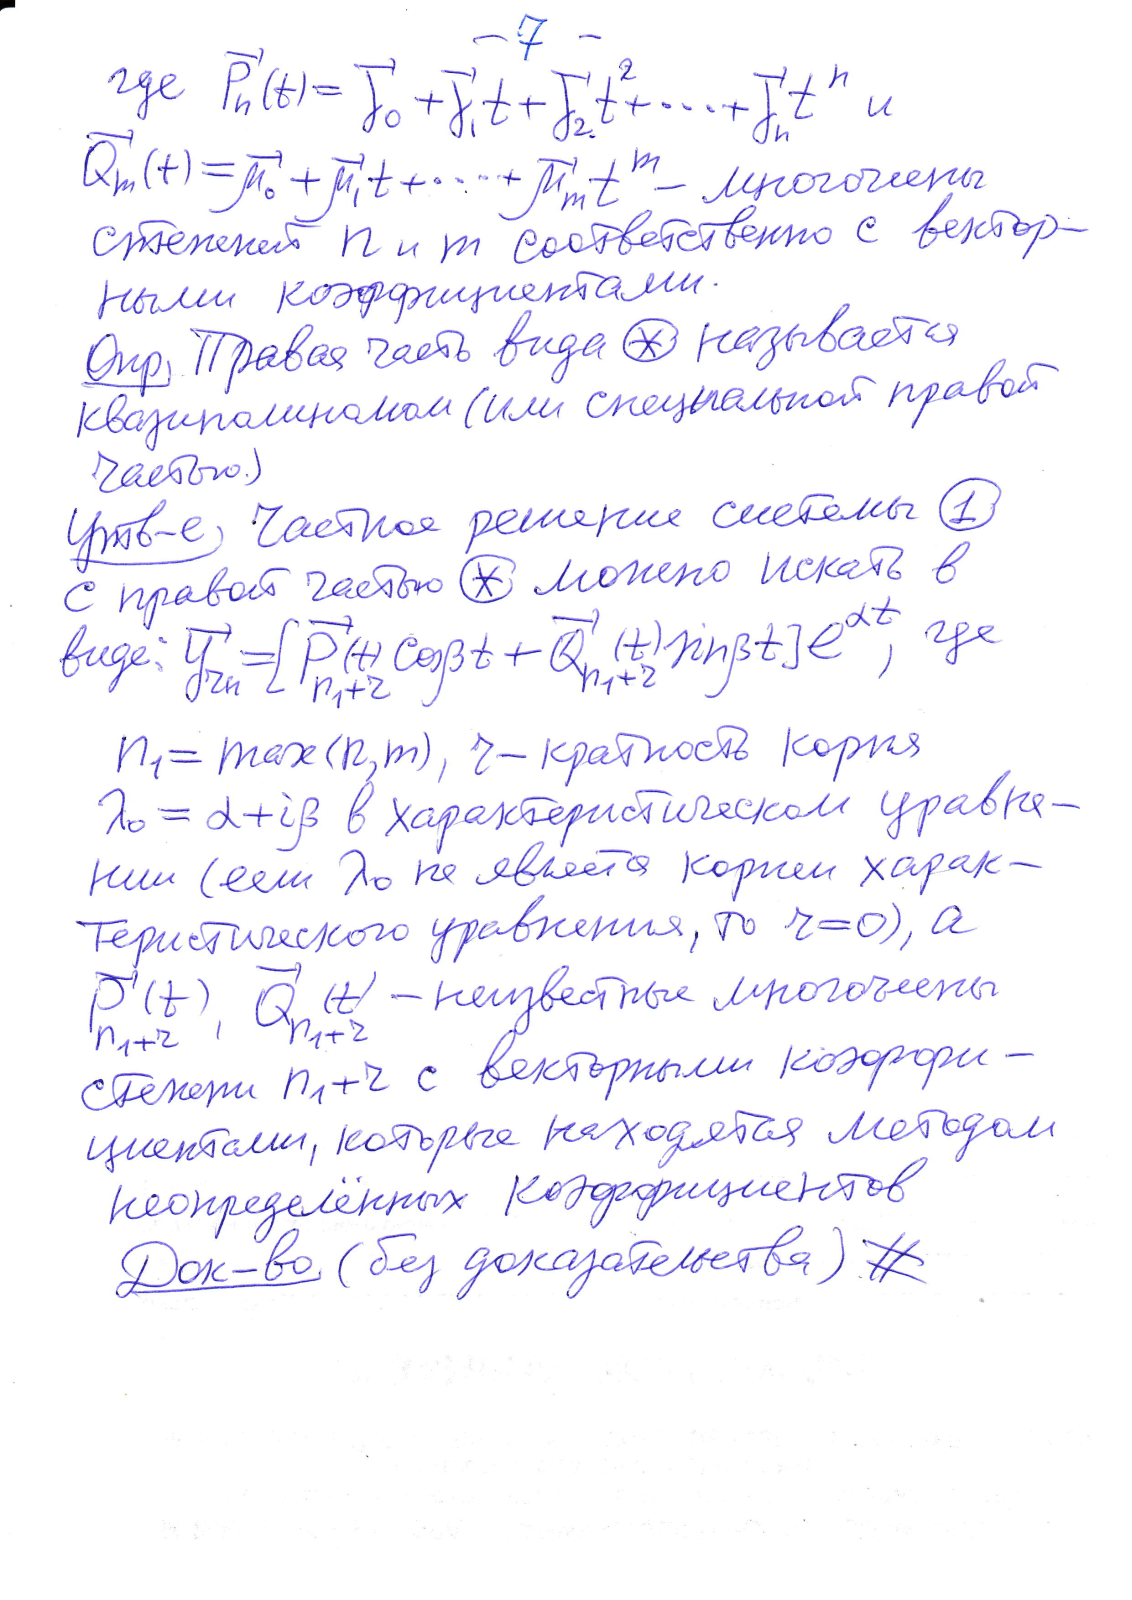 – 7 –
где P⃗ₙ(t) = γ⃗₀ + γ⃗₁t + γ⃗₂t² + ... + γ⃗ₙtⁿ и
Q⃗ₘ(t) = μ⃗₀ + μ⃗₁t + .... + μ⃗ₘtᵐ – многочлены
степеней n и m соответственно с вектор-
ными коэффициентами.
Опр. Правая часть вида ⊛ называется
квазиполиномом (или специальной правой
частью.)
Утв-е, Частное решение системы ①
с правой частью ⊛ можно искать в
виде: y⃗_чн = [P⃗_{n₁+r}(t) cosβt + Q⃗_{n₁+r}(t) sinβt] e^{αt}, где
n₁ = max(n,m), r – кратность корня
λ₀ = α+iβ в характеристическом уравне-
нии (если λ₀ не является корнем харак-
теристического уравнения, то r=0), а
P⃗_{n₁+r}(t), Q⃗_{n₁+r}(t) – неизвестные многочлены
степени n₁+r с векторными коэффи-
циентами, которые находятся методом
неопределённых коэффициентов
Док-во. (без доказательства) #